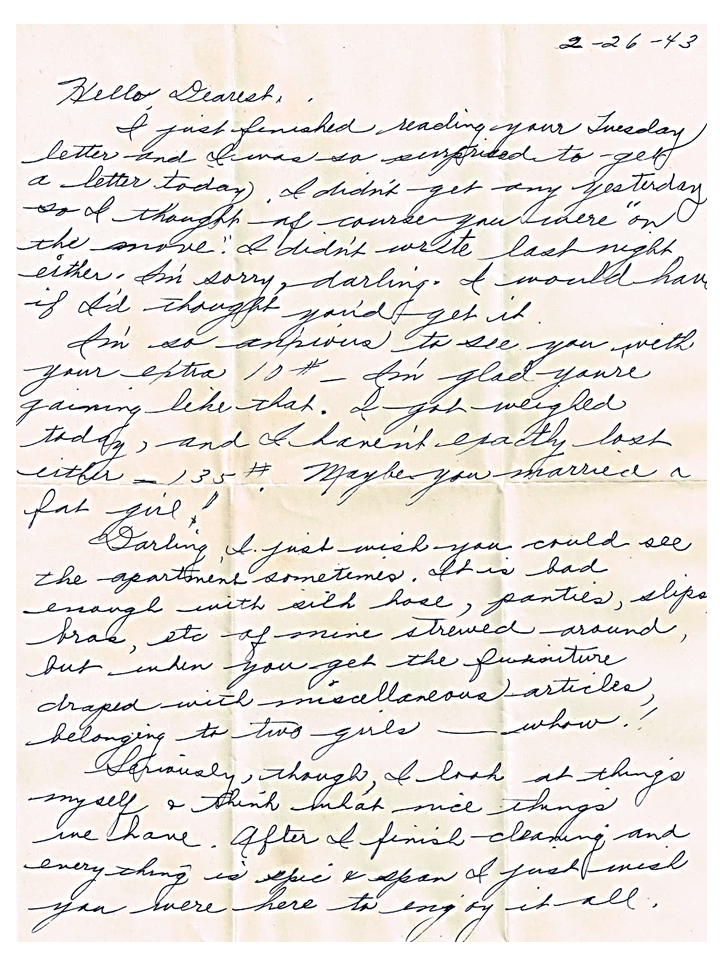 2-26-43
Hello, Dearest,
I just finished reading your Tuesday
letter and I was so surprised to get
a letter today. I didn't get any yesterday
so I thought of course you were "on
the move". I didn't write last night
either. I'm sorry, darling. I would have
if I'd thought you'd get it.
I'm so anxious to see you with
your extra 10# - I'm glad you're
gaining like that. I got weighed
today, and I haven't exactly lost
either - 135#. Maybe you married a
fat girl!
Darling, I just wish you could see
the apartment sometimes. It is bad
enough with silk hose, panties, slips,
bras, etc of mine strewed around,
but when you get the furniture
draped with miscellaneous articles,
belonging to two girls — whow!!
Seriously, though, I look at things
myself & think what nice things
we have. After I finish cleaning and
everything is spic & span I just wish
you were here to enjoy it all.